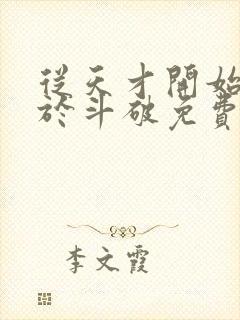 從天才開始
於斗破免費
李文霞